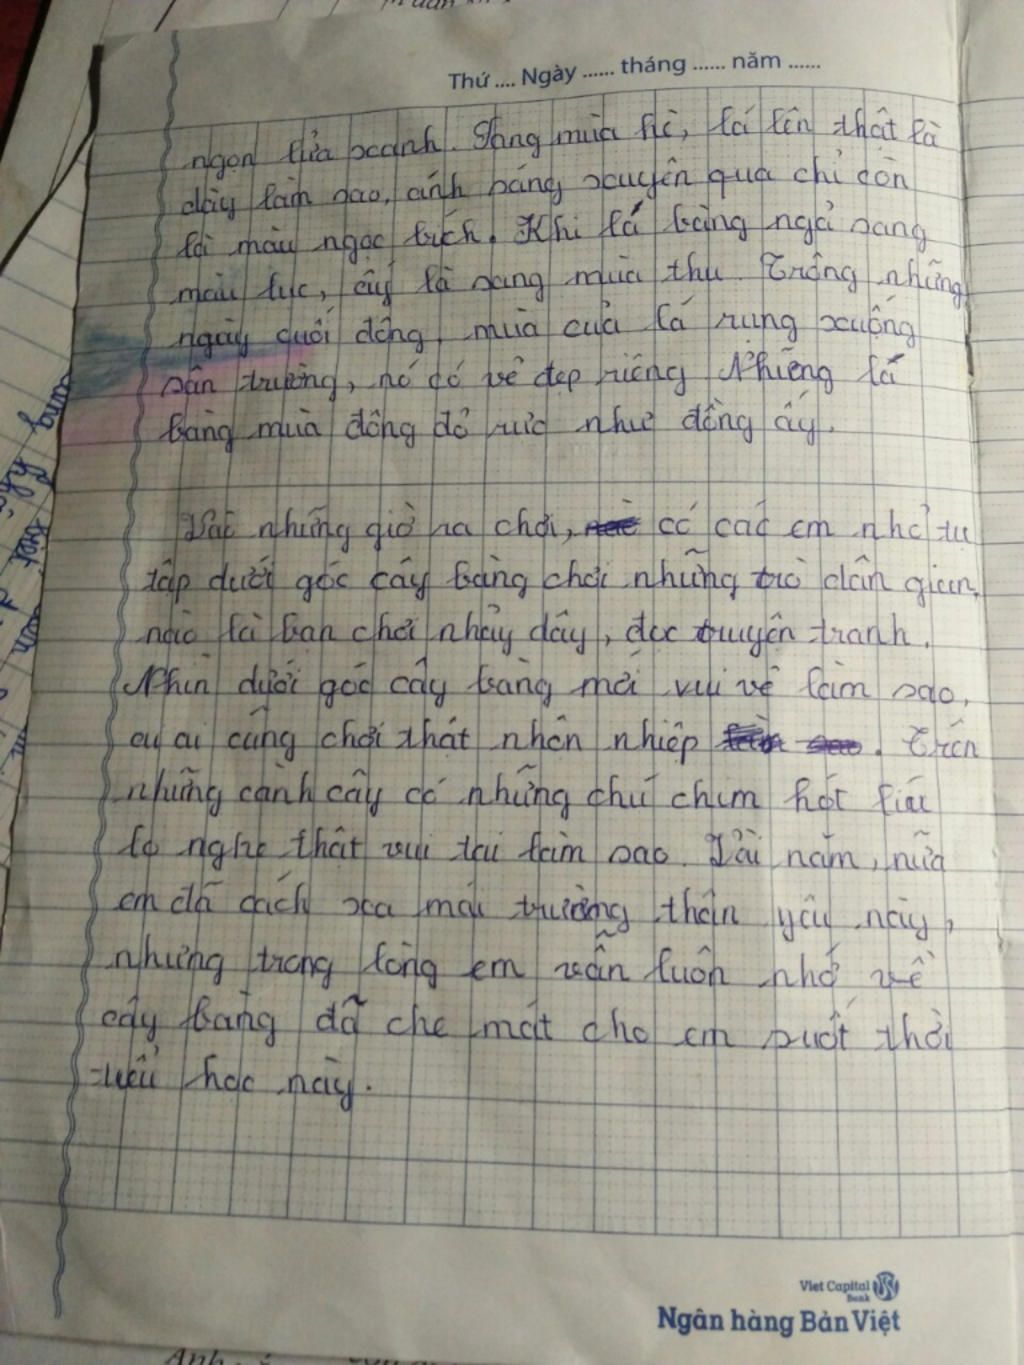 Thứ .... Ngày ...... tháng ...... năm ......
ngọn lửa xanh. Sang mùa hè, lá lên thật là
dày làm sao, ánh sáng xuyên qua chỉ còn
lại màu ngọc bích. Khi lá bàng ngả sang
màu lục, ấy là sang mùa thu. Trong những
ngày cuối đông, mùa của lá rụng xuống
sân trường, nó có vẻ đẹp riêng. Những lá
bàng mùa đông đỏ rực như đồng ấy.
Vào những giờ ra chơi, có các em nhỏ tụ
tập dưới gốc cây bàng chơi những trò dân gian,
nào là bạn chơi nhảy dây, đọc truyện tranh.
Nhìn dưới gốc cây bàng mới vui vẻ làm sao,
ai ai cũng chơi thật nhộn nhịp. Trên
những cành cây có những chú chim hót líu
lo nghe thật vui tai làm sao. Vài năm nữa
em đã cách xa mái trường thân yêu này,
nhưng trong lòng em vẫn luôn nhớ về
cây bàng đã che mát cho em suốt thời
tiểu học này.
Viet Capital
Bank
Ngân hàng Bản Việt